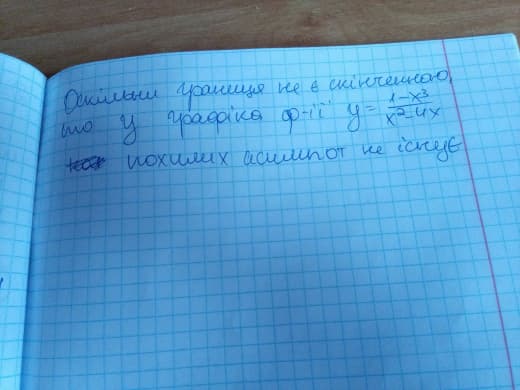 Оскільки границя не є скінченною,
то у графіка ф-ії y = 1-x³/x²-4x
похилих асимптот не існує